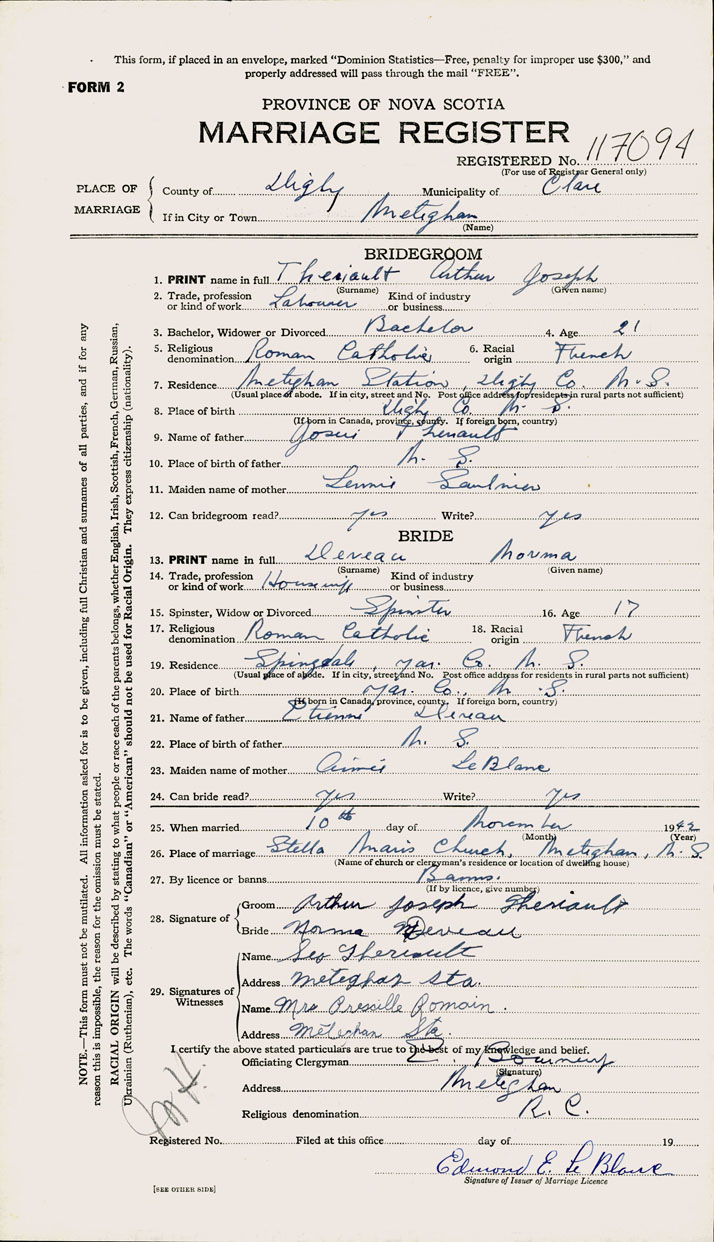 This form, if placed in an envelope, marked "Dominion Statistics—Free, penalty for improper use $300," and
properly addressed will pass through the mail "FREE".
FORM 2
PROVINCE OF NOVA SCOTIA
MARRIAGE REGISTER
REGISTERED No. 117094
(For use of Registrar General only)
PLACE OF MARRIAGE
County of Digby Municipality of Clare
If in City or Town Meteghan
(Name)
BRIDEGROOM
1. PRINT name in full Theriault Arthur Joseph
(Surname) (Given name)
2. Trade, profession or kind of work Labourer Kind of industry or business
3. Bachelor, Widower or Divorced Bachelor 4. Age 21
5. Religious denomination Roman Catholic 6. Racial origin French
7. Residence Meteghan Station, Digby Co. N. S.
(Usual place of abode. If in city, street and No. Post office address for residents in rural parts not sufficient)
8. Place of birth Digby Co. N. S.
(If born in Canada, province, county. If foreign born, country)
9. Name of father Theriault
10. Place of birth of father N. S.
11. Maiden name of mother Lennie Saulnier
12. Can bridegroom read? yes Write? yes
BRIDE
13. PRINT name in full Deveau Norma
(Surname) (Given name)
14. Trade, profession or kind of work Housewife Kind of industry or business
15. Spinster, Widow or Divorced Spinster 16. Age 17
17. Religious denomination Roman Catholic 18. Racial origin French
19. Residence Spingdale, Yar. Co. N. S.
(Usual place of abode. If in city, street and No. Post office address for residents in rural parts not sufficient)
20. Place of birth Yar. Co., N. S.
(If born in Canada, province, county. If foreign born, country)
21. Name of father Etienne Deveau
22. Place of birth of father N. S.
23. Maiden name of mother Aimie LeBlanc
24. Can bride read? yes Write? yes
25. When married 10th day of November 1942
(Month) (Year)
26. Place of marriage Stella Maris Church, Meteghan, N. S.
(Name of church or clergyman's residence or location of dwelling house)
27. By licence or banns Banns.
(If by licence, give number)
28. Signature of
Groom Arthur Joseph Theriault
Bride Norma Deveau
29. Signatures of Witnesses
Name Theriault
Address Meteghan Sta.
Name Mrs Romain.
Address Meteghan Sta.
I certify the above stated particulars are true to the best of my knowledge and belief.
Officiating Clergyman E.
(Signature)
Address Meteghan
Religious denomination R. C.
Registered No. Filed at this office day of 19
Edmond E. Le Blanc
Signature of Issuer of Marriage Licence
[SEE OTHER SIDE]
NOTE.—This form must not be mutilated. All information asked for is to be given, including full Christian and surnames of all parties, and if for any
reason this is impossible, the reason for the omission must be stated.
RACIAL ORIGIN will be described by stating to what people or race each of the parents belongs, whether English, Irish, Scottish, French, German, Russian,
Ukrainian (Ruthenian), etc. The words "Canadian" or "American" should not be used for Racial Origin. They express citizenship (nationality).